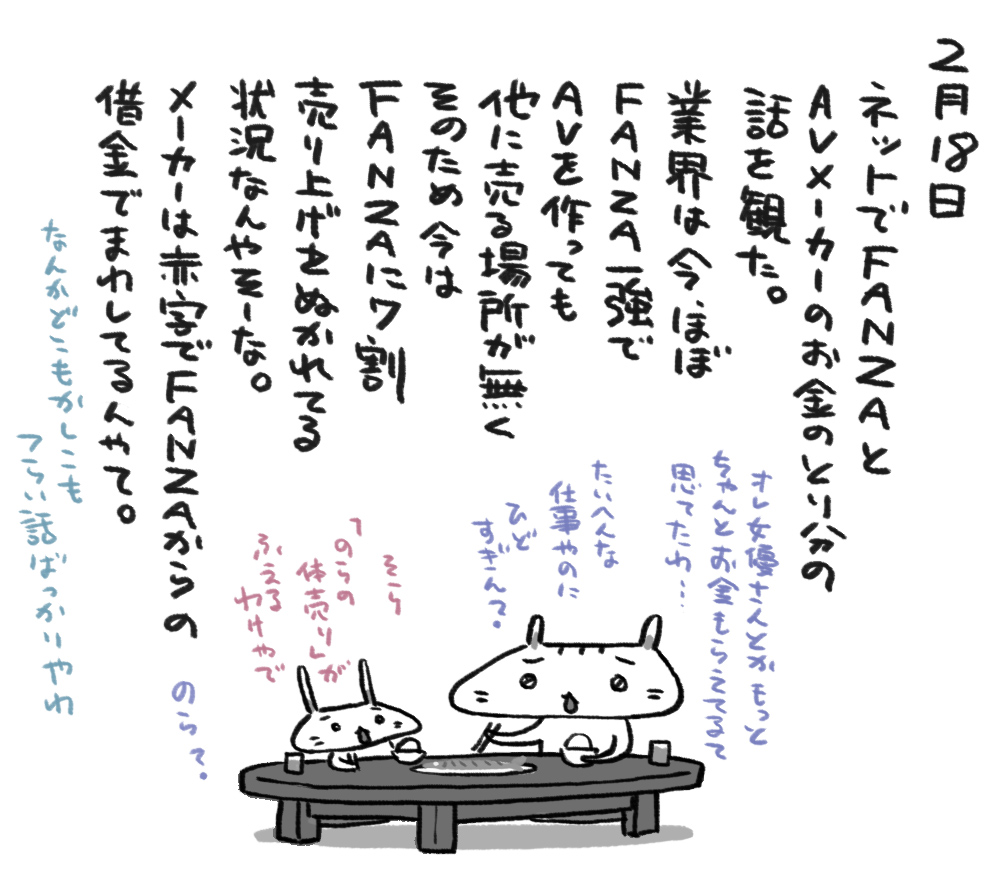 2月18日
ネットでFANZAと
AVメーカーのお金のとり分の
話を観た。
業界は今、ほぼ
FANZA一強で
AVを作っても
他に売る場所が無く
そのため今は
FANZAに7割
売り上げをぬかれてる
状況なんやそーな。
メーカーは赤字でFANZAからの
借金でまわしてるんやて。
オレ女優さんとかもっと
ちゃんとお金もらえてるて
思てたわ…
たいへんな
仕事やのに
ひど
すぎんて。
そら
「のらの
体売り」が
ふえる
わけやで
のらて。
なんかどこもかしこも
つらい話ばっかりやわ